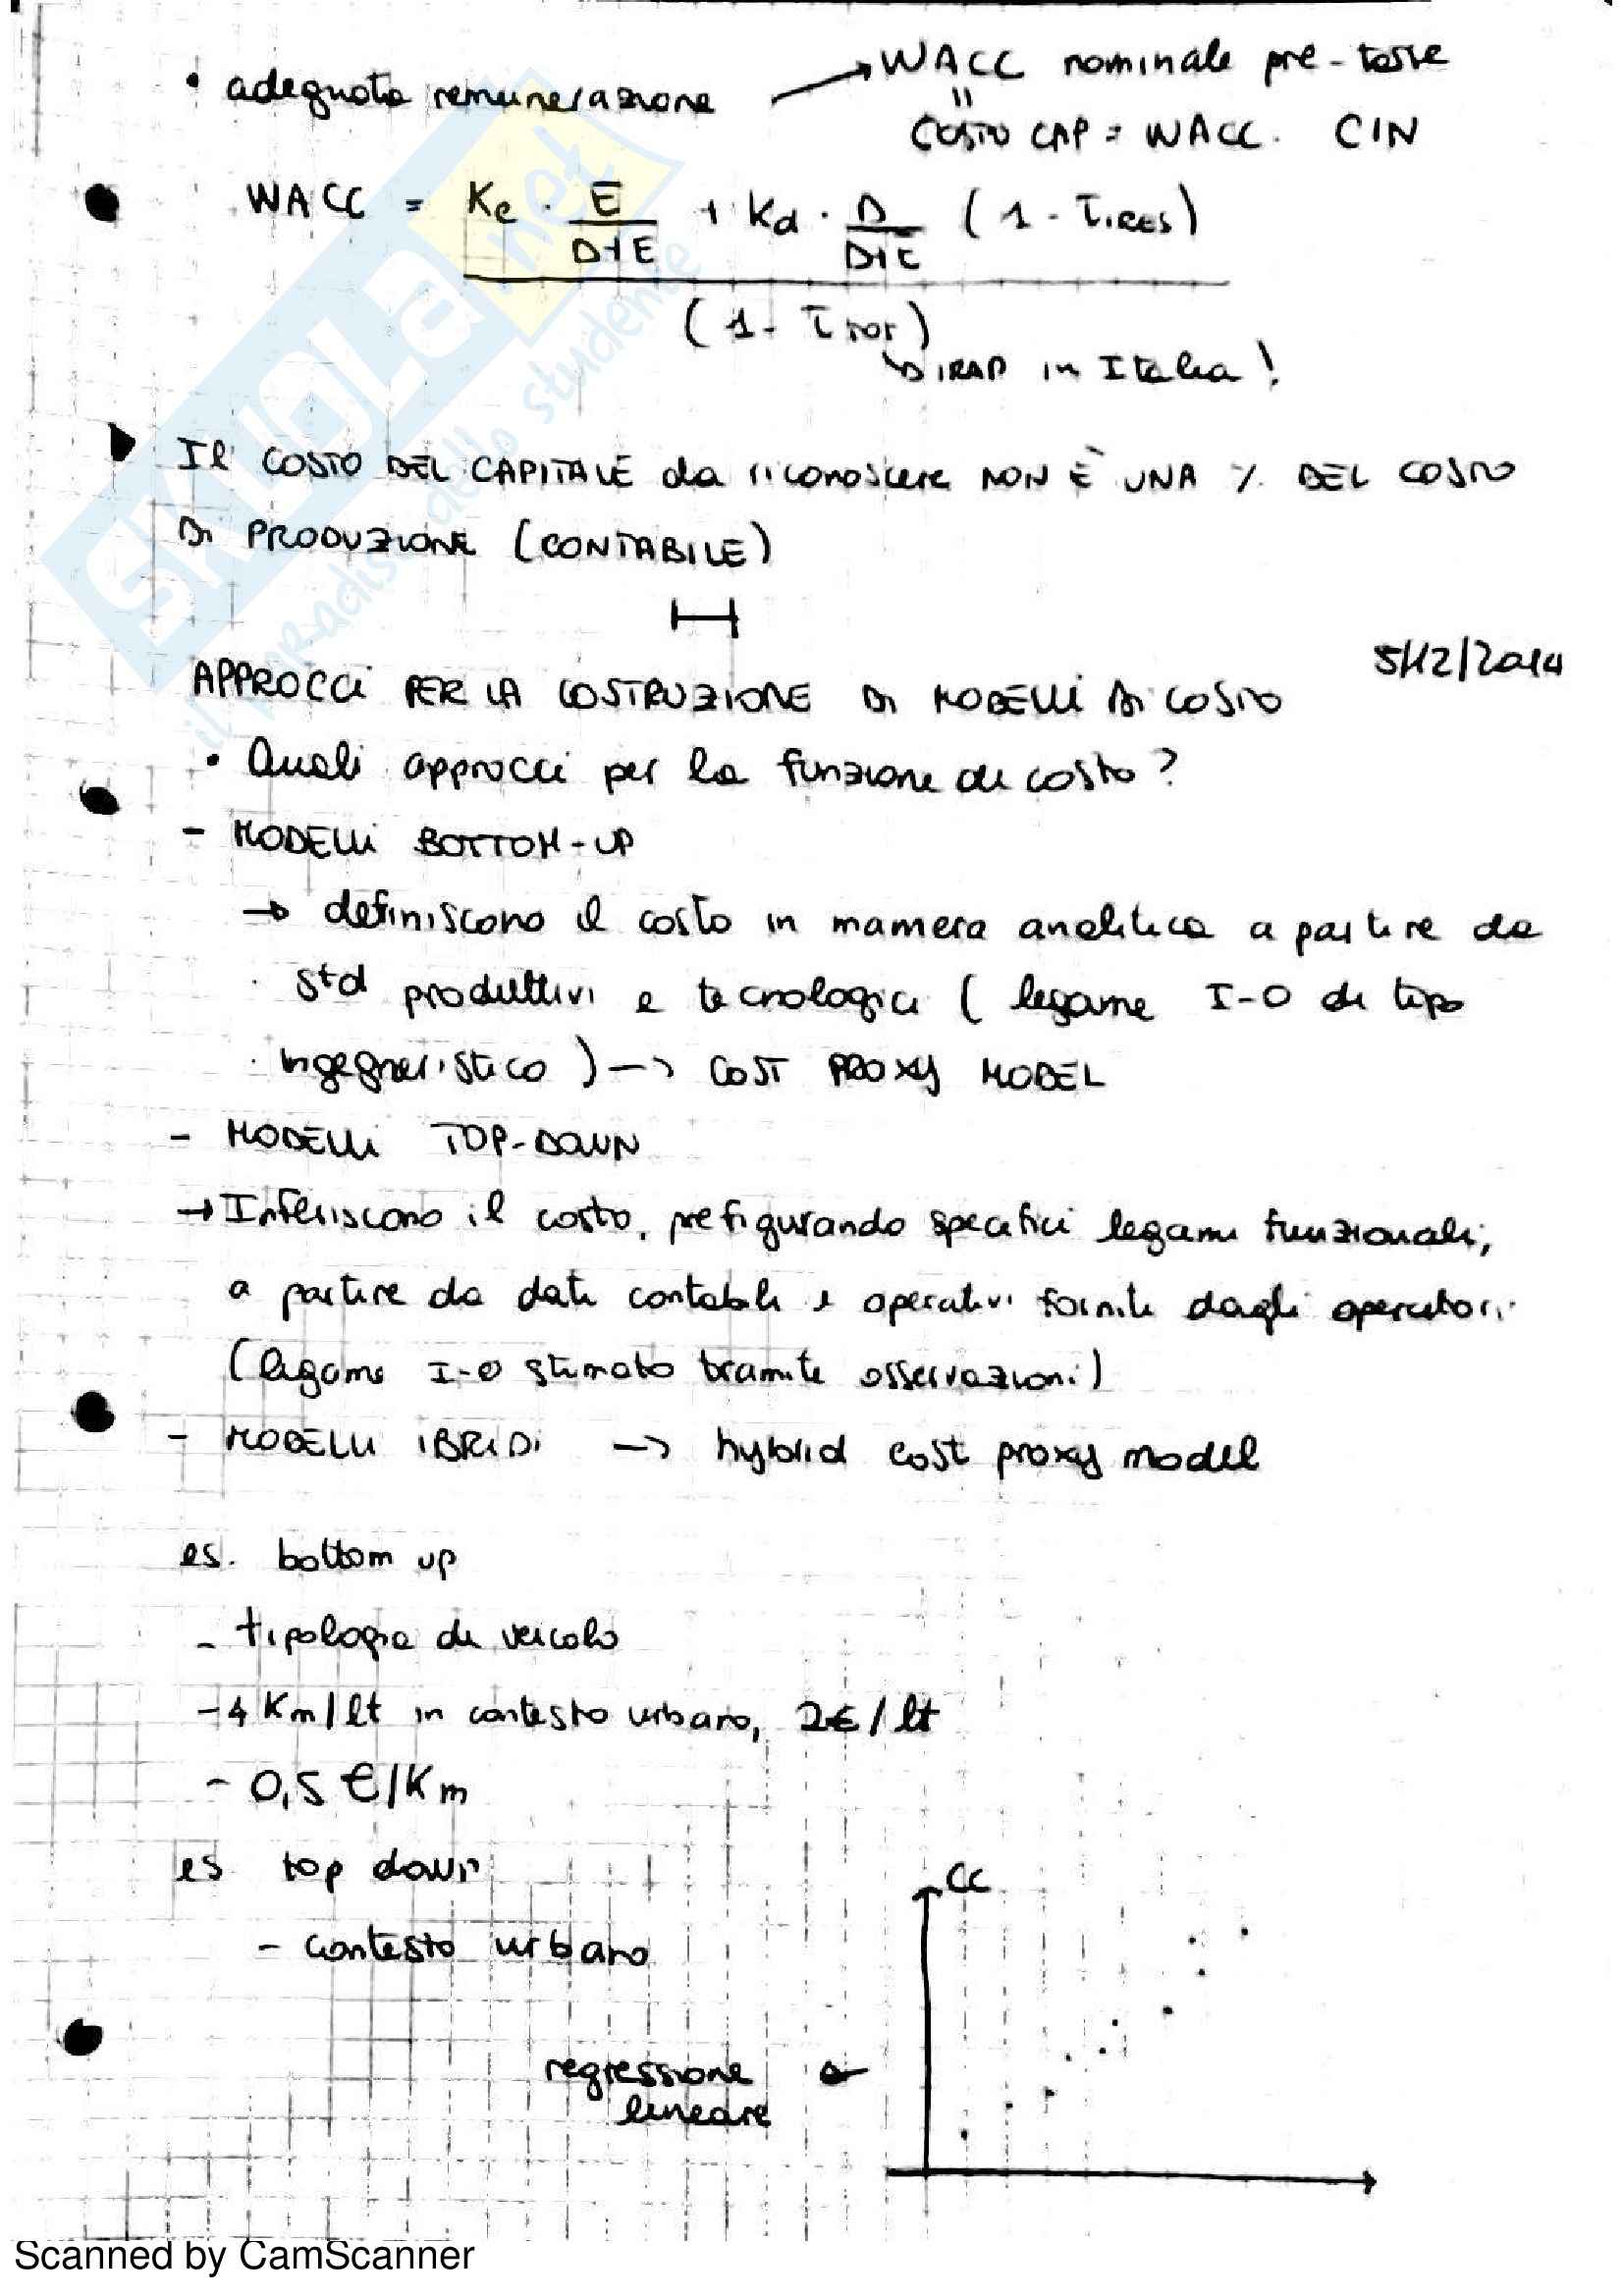 • adeguata remunerazione → WACC nominale pre-tasse
"
COSTO CAP = WACC · CIN
WACC = Ke · E/(D+E) + Kd · D/(D+E) (1 - τIRES)
(1 - τTOT)
↳ IRAP in Italia!
Il COSTO DEL CAPITALE da riconoscere NON È UNA % DEL COSTO
DI PRODUZIONE (CONTABILE)
5/12/2014
APPROCCI PER LA COSTRUZIONE DI MODELLI DI COSTO
• Quali approcci per la funzione di costo?
- MODELLI BOTTOM-UP
→ definiscono il costo in maniera analitica a partire da
std produttivi e tecnologici ( legame I-O di tipo
ingegneristico ) → COST PROXY MODEL
- MODELLI TOP-DOWN
→ Inferiscono il costo, prefigurando specifici legami funzionali,
a partire da dati contabili e operativi forniti dagli operatori
(legame I-O stimato tramite osservazioni)
- MODELLI IBRIDI → hybrid cost proxy model
es. bottom up
- tipologia di veicolo
- 4 Km/lt in contesto urbano, 2€/lt
- 0,5 €/Km
es top down
CC
- contesto urbano
regressione
lineare
SKUOLA.net
il paradiso dello studente
Scanned by CamScanner